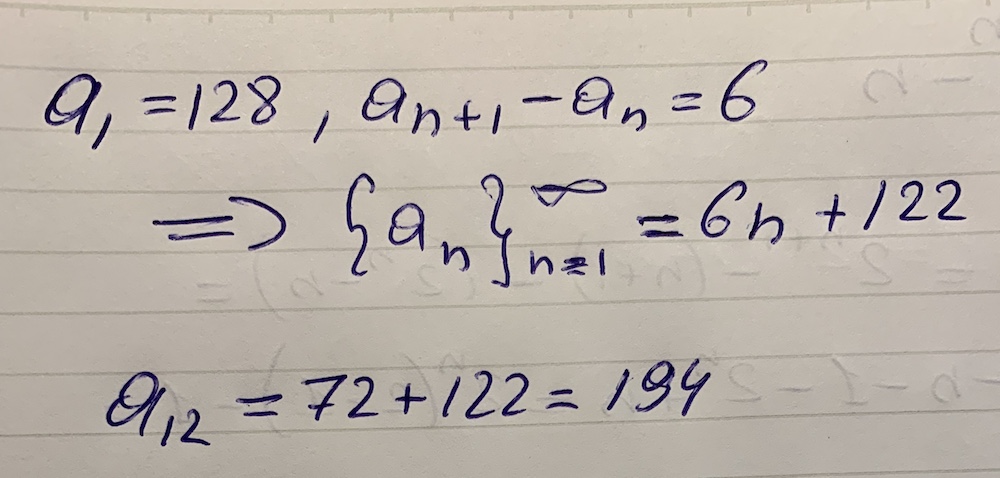 a₁ = 128, aₙ₊₁ − aₙ = 6
⇒ {aₙ}ₙ₌₁^∞ = 6n + 122
a₁₂ = 72 + 122 = 194